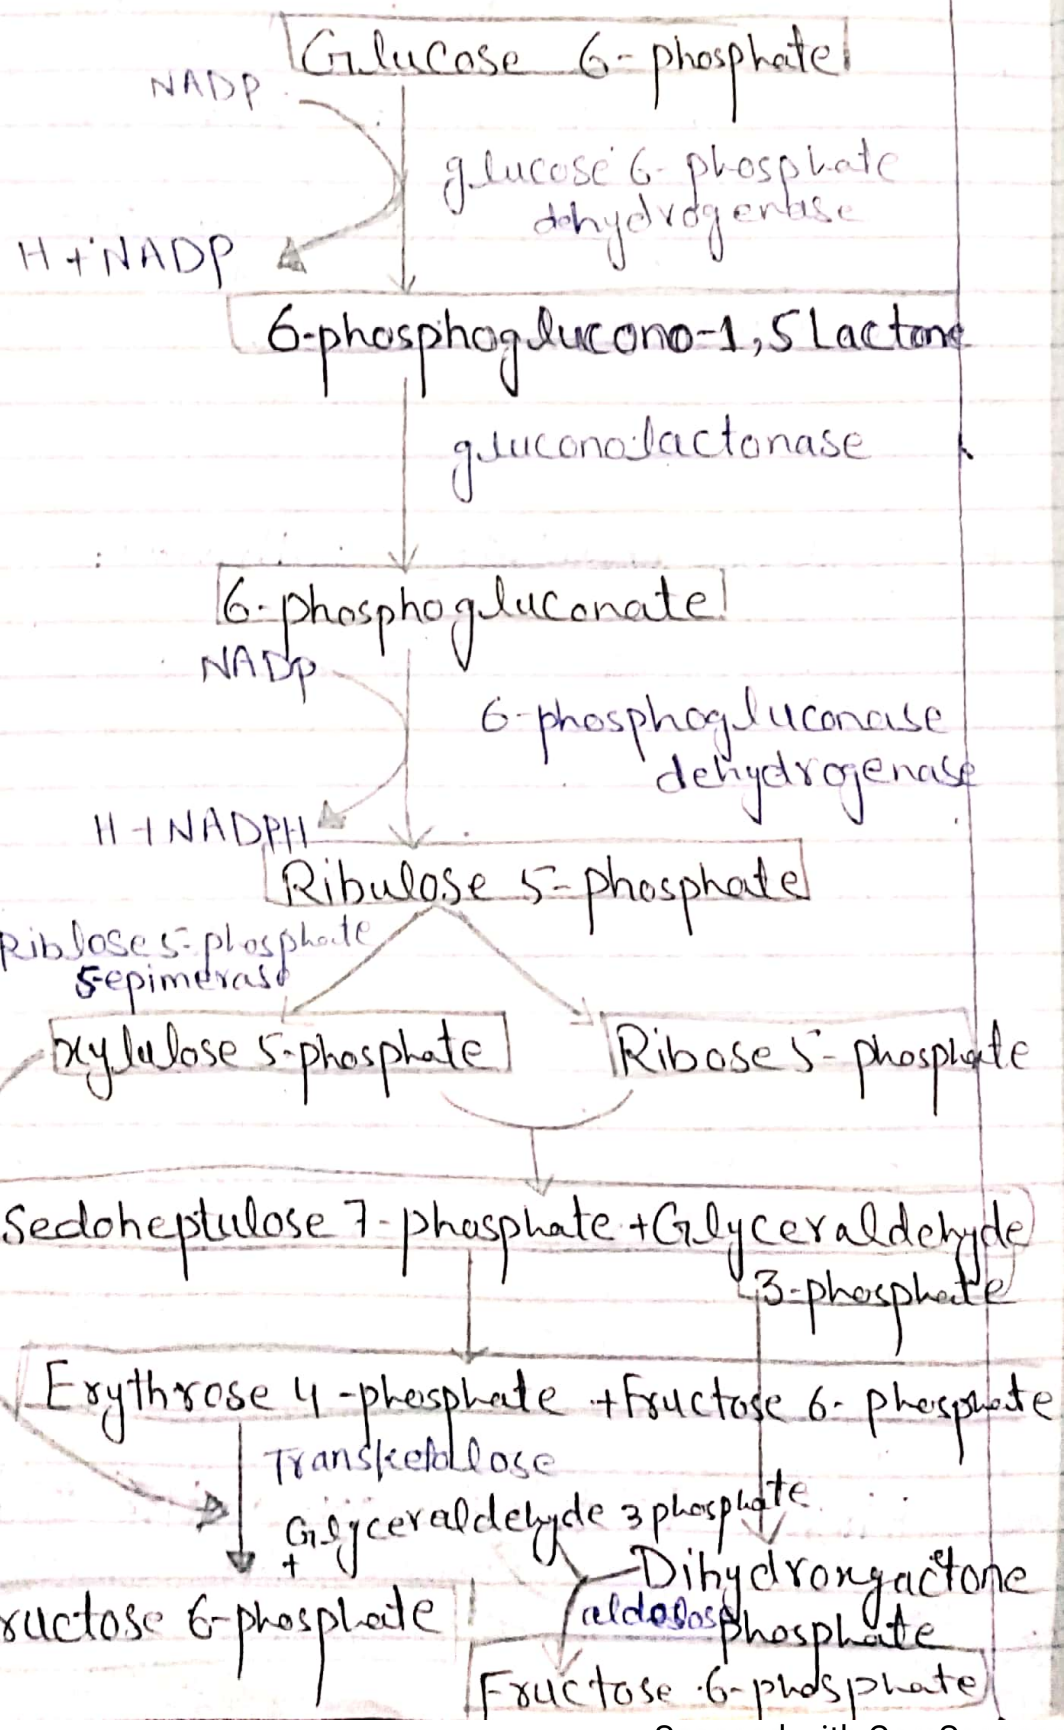 Glucose 6-phosphate
NADP
glucose 6-phosphate
dehydrogenase
H+NADP
6-phosphoglucono-1,5 Lactone
gluconolactonase
6-phosphogluconate
NADP
6-phosphogluconase
dehydrogenase
H+NADPH
Ribulose 5-phosphate
Riblose 5-phosphate
5-epimerase
xylulose 5-phosphate
Ribose 5-phosphate
Sedoheptulose 7-phosphate +Glyceraldehyde
3-phosphate
Erythrose 4-phosphate +Fructose 6-phosphate
Glyceraldehyde 3 phosphate
+
phosphate
ructose 6-phosphate
Fructose 6-phosphate